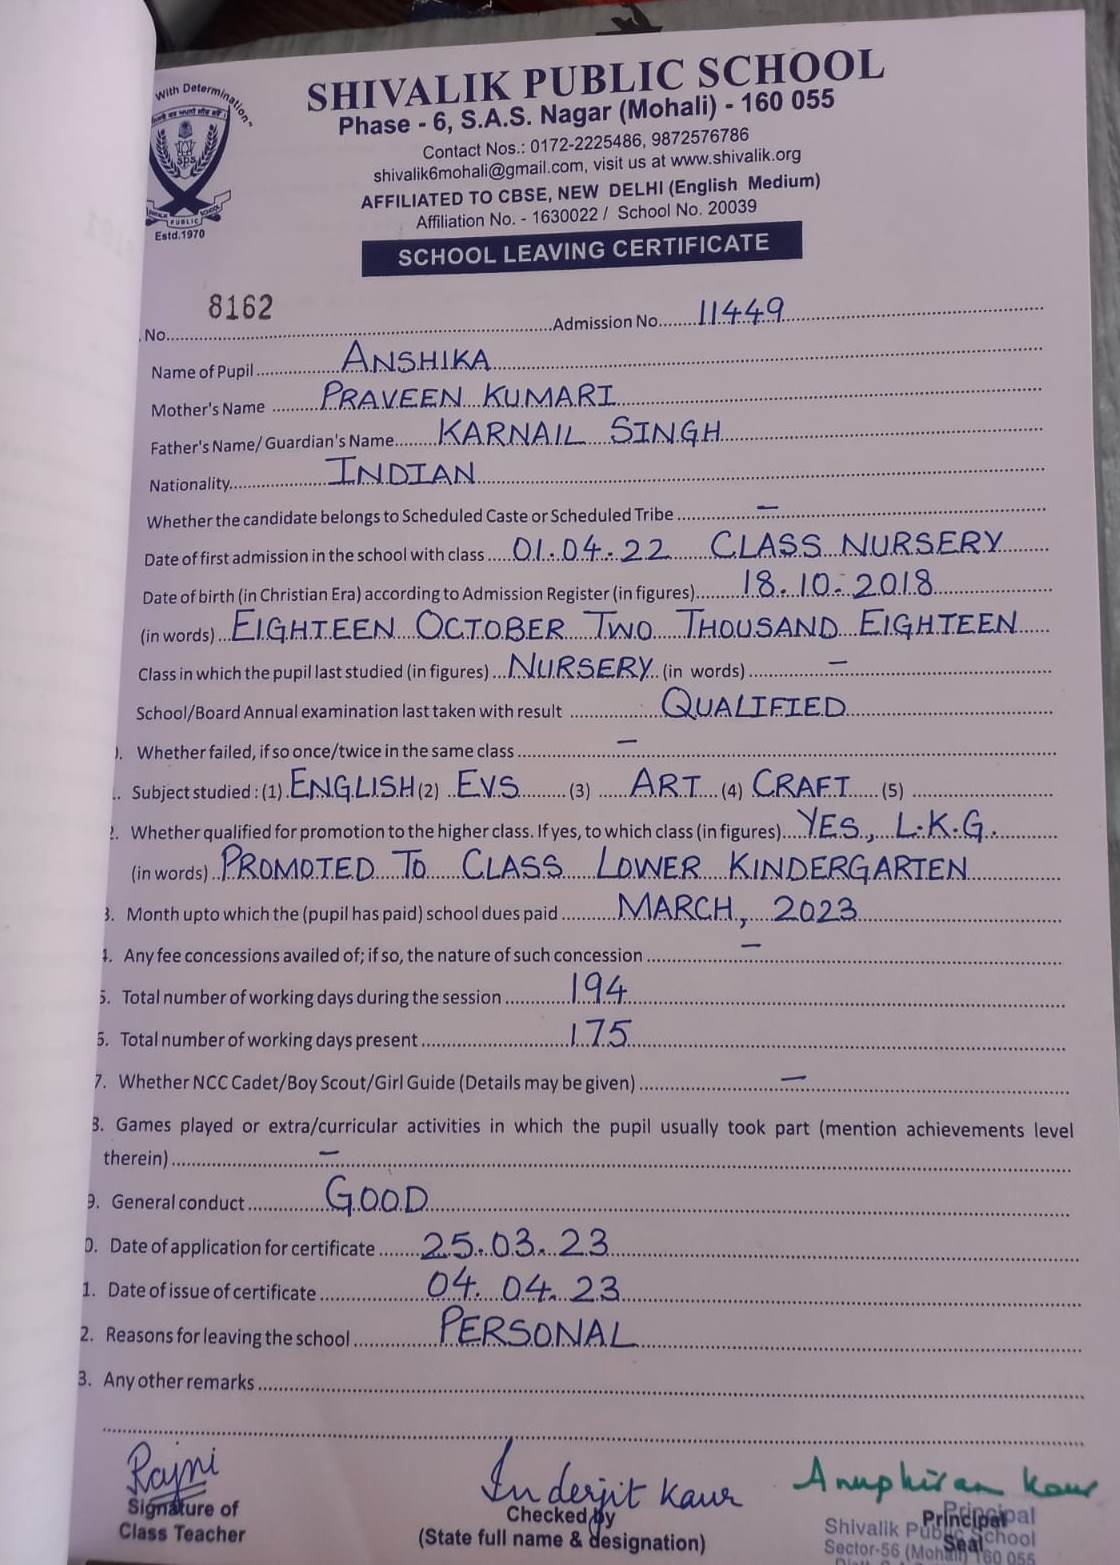 With Determination
SPS
PUBLIC
Estd.1970
SHIVALIK PUBLIC SCHOOL
Phase - 6, S.A.S. Nagar (Mohali) - 160 055
Contact Nos.: 0172-2225486, 9872576786
shivalik6mohali@gmail.com, visit us at www.shivalik.org
AFFILIATED TO CBSE, NEW DELHI (English Medium)
Affiliation No. - 1630022 / School No. 20039
SCHOOL LEAVING CERTIFICATE
No. 8162 Admission No. 11449
Name of Pupil ANSHIKA
Mother's Name PRAVEEN KUMARI
Father's Name/ Guardian's Name KARNAIL SINGH
Nationality INDIAN
Whether the candidate belongs to Scheduled Caste or Scheduled Tribe –
Date of first admission in the school with class 01.04.22 CLASS NURSERY
Date of birth (in Christian Era) according to Admission Register (in figures) 18.10.2018
(in words) EIGHTEEN OCTOBER TWO THOUSAND EIGHTEEN
Class in which the pupil last studied (in figures) NURSERY (in words) –
School/Board Annual examination last taken with result QUALIFIED
). Whether failed, if so once/twice in the same class –
. Subject studied : (1) ENGLISH (2) EVS (3) ART (4) CRAFT (5)
2. Whether qualified for promotion to the higher class. If yes, to which class (in figures) YES, L.K.G.
(in words) PROMOTED TO CLASS LOWER KINDERGARTEN
3. Month upto which the (pupil has paid) school dues paid MARCH, 2023
4. Any fee concessions availed of; if so, the nature of such concession –
5. Total number of working days during the session 194
6. Total number of working days present 175
7. Whether NCC Cadet/Boy Scout/Girl Guide (Details may be given) –
8. Games played or extra/curricular activities in which the pupil usually took part (mention achievements level
therein) –
9. General conduct GOOD
0. Date of application for certificate 25.03.23
1. Date of issue of certificate 04.04.23
2. Reasons for leaving the school PERSONAL
3. Any other remarks
Rajni Inderjit Kaur Anuphiran Kaur
Signature of Class Teacher
Checked by
(State full name & designation)
Principal
Seal
Principal
Shivalik Public School
Sector-56 (Mohali) 160 055